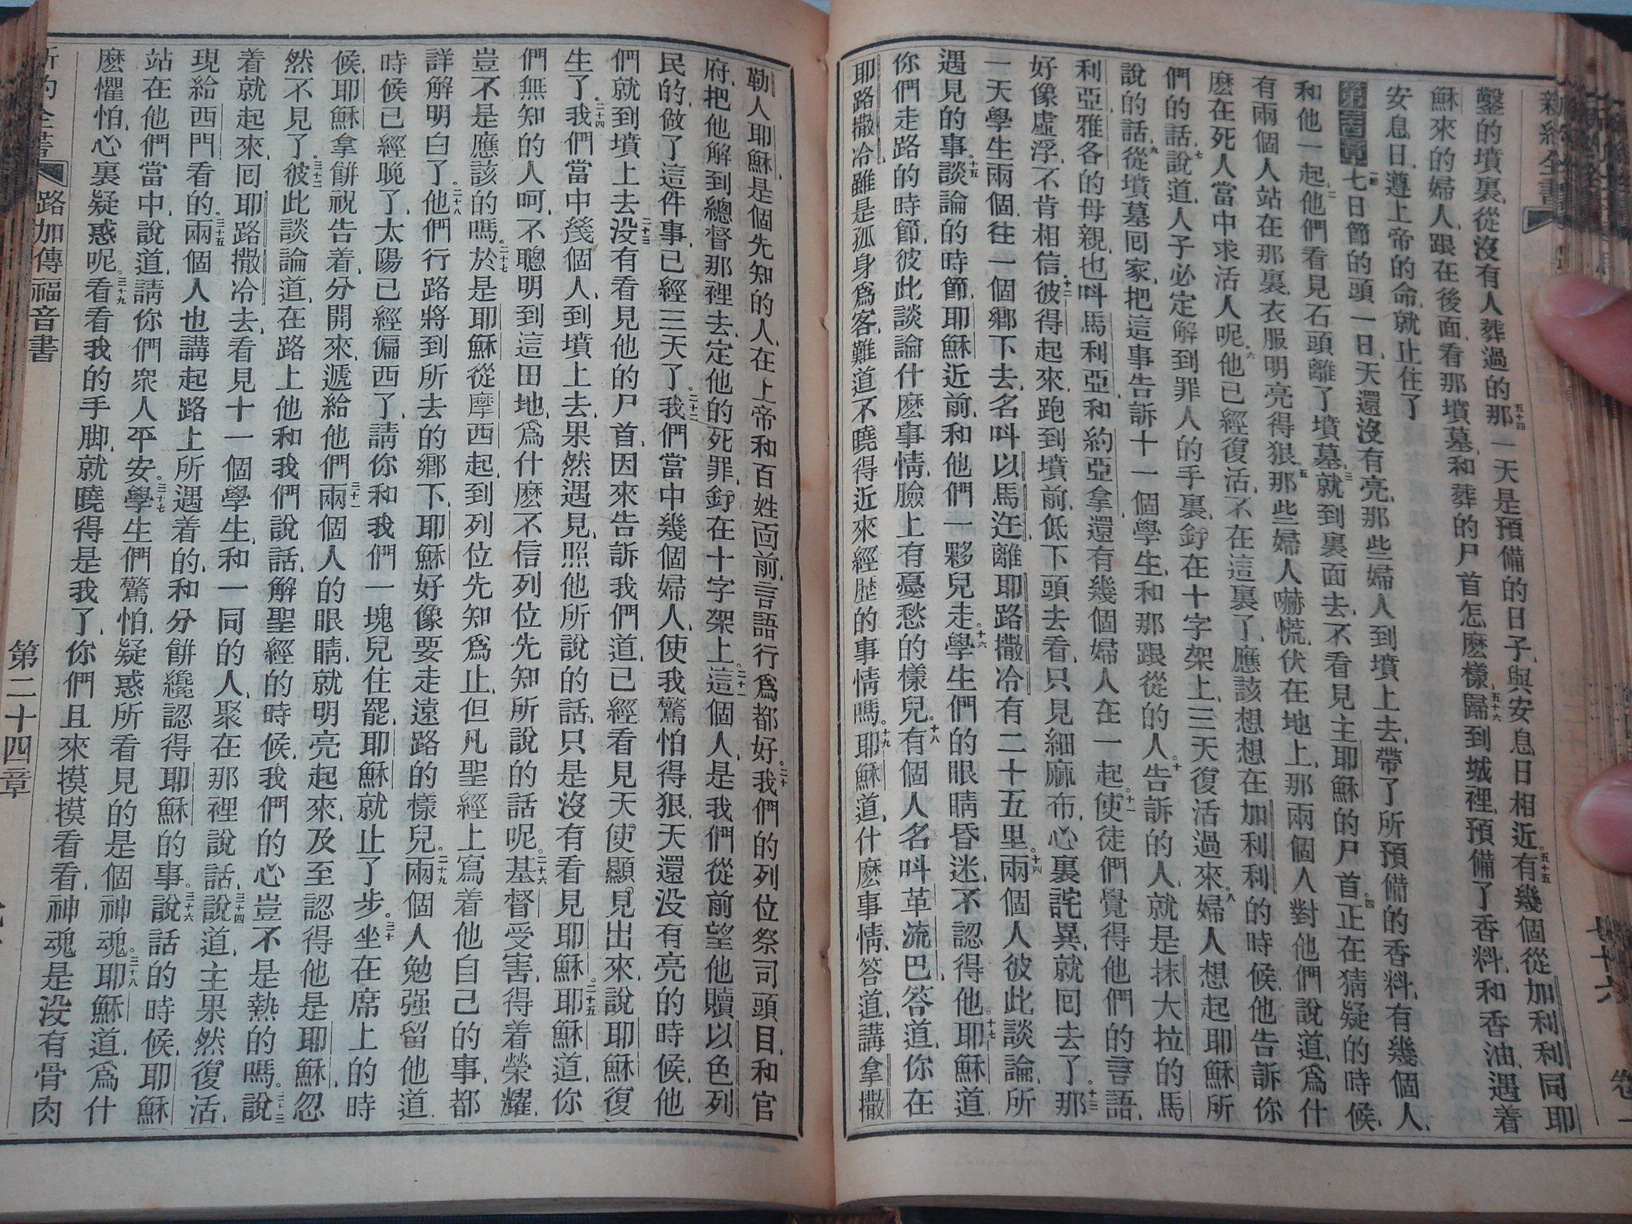 新約全書
鑿的墳裏、從沒有人葬過的、五十四那一天是預備的日子、與安息日相近、五十五有幾個從加利利同耶
穌來的婦人、跟在後面、看那墳墓、和葬的尸首怎麽樣、五十六歸到城裡、預備了香料、和香油、遇着
安息日、遵上帝的命、就止住了
七日節的頭一日、天還沒有亮、那些婦人到墳上去、帶了所預備的香料、有幾個人、
和他一起、二他們看見石頭離了墳墓、三就到裏面去、不看見主耶穌的尸首、四正在猜疑的時候、
有兩個人站在那裏、衣服明亮得狠、五那些婦人嚇慌、伏在地上、那兩個人對他們說道、爲什
麽在死人當中求活人呢、六他已經復活、不在這裏了、應該想想在加利利的時候、他告訴你
們的話、七說道、人子必定解到罪人的手裏、釘在十字架上、三天復活過來、八婦人想起耶穌所
說的話、九從墳墓囘家、把這事告訴十一個學生、和那跟從的人、十告訴的人、就是抹大拉的馬
利亞、雅各的母親、也呌馬利亞、和約亞拿、還有幾個婦人在一起、十一使徒們覺得他們的言語、
好像虛浮、不肯相信、十二彼得起來、跑到墳前、低下頭去看、只見細麻布、心裏詫異、就囘去了、十三那
一天學生兩個、往一個鄉下去、名呌以馬迕、離耶路撒冷有二十五里、十四兩個人彼此談論所
遇見的事、十五談論的時節、耶穌近前、和他們一夥兒走、十六學生們的眼睛昏迷、不認得他、十七耶穌道、
你們走路的時節、彼此談論什麽事情、臉上有憂愁的樣兒、十八有個人名呌革流巴、答道、你在
耶路撒冷、雖是孤身爲客、難道不曉得近來經歷的事情嗎、十九耶穌道、什麽事情、答道、講拿撒
勒人耶穌、是個先知的人、在上帝和百姓面前、言語行爲都好、二十我們的列位祭司頭目、和官
府、把他解到總督那裡去、定他的死罪、釘在十字架上、二十一這個人、是我們從前望他贖以色列
民的、做了這件事、已經三天了、二十二我們當中幾個婦人、使我驚怕得狠、天還沒有亮的時候、他
們就到墳上去、二十三沒有看見他的尸首、因來告訴我們道、已經看見天使顯見出來、說耶穌復
生了、二十四我們當中幾個人、到墳上去、果然遇見、照他所說的話、只是沒有看見耶穌、二十五耶穌道、你
們無知的人呵、不聰明到這田地、爲什麽不信列位先知所說的話呢、二十六基督受害、得着榮耀、
豈不是應該的嗎、二十七於是耶穌從摩西起、到列位先知爲止、但凡聖經上寫着他自己的事、都
詳解明白了、二十八他們行路將到所去的鄉下、耶穌好像要走遠路的樣兒、二十九兩個人勉强留他道、
時候已經晚了、太陽已經偏西了、請你和我們一塊兒住罷、耶穌就止了步、三十坐在席上的時
候、耶穌拿餅祝告着、分開來、遞給他們、三十一兩個人的眼睛、就明亮起來、及至認得他是耶穌、忽
然不見了、三十二彼此談論道、在路上他和我們說話、解聖經的時候、我們的心豈不是熱的嗎、三十三說
着就起來、囘耶路撒冷去、看見十一個學生、和一同的人、聚在那裡說話、三十四說道、主果然復活、
現給西門看的、三十五兩個人也講起路上所遇着的、和分餅纔認得耶穌的事、三十六說話的時候、耶穌
站在他們當中說道、請你們衆人平安、三十七學生們驚怕、疑惑所看見的是個神魂、三十八耶穌道、爲什
麽懼怕、心裏疑惑呢、三十九看看我的手脚、就曉得是我了、你們且來摸摸看看、神魂是没有骨肉
新約全書 路加傳福音書 第二十四章